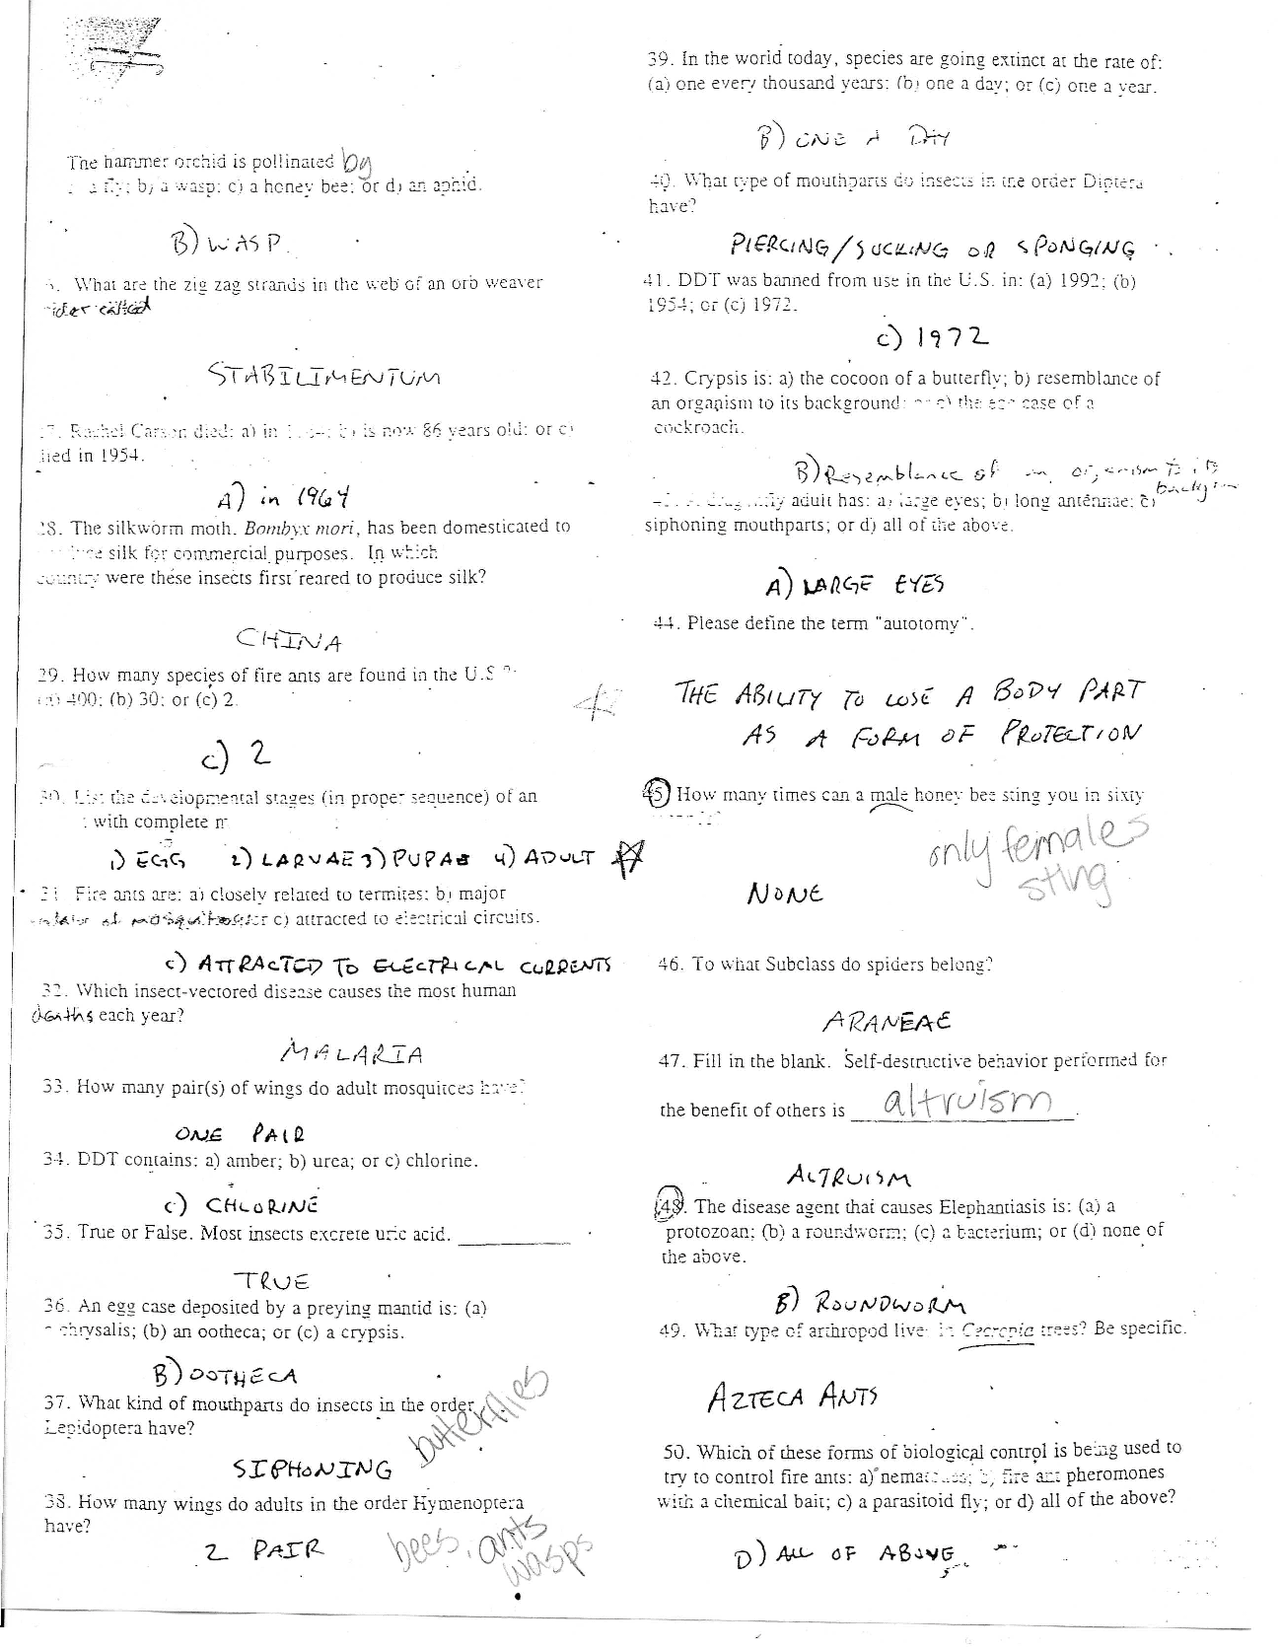 The hammer orchid is pollinated by
a fly; b) a wasp; c) a honey bee; or d) an aphid.
B) WASP.
What are the zig zag strands in the web of an orb weaver
ider called
STABILIMENTUM
Rachel Carson died: a) in b) is now 86 years old; or c)
died in 1954.
A) in 1964
28. The silkworm moth. Bombyx mori, has been domesticated to
silk for commercial purposes. In which
country were these insects first reared to produce silk?
CHINA
29. How many species of fire ants are found in the U.S
(a) 400; (b) 30; or (c) 2.
c) 2
30. List the developmental stages (in proper sequence) of an
with complete
1) EGG 2) LARVAE 3) PUPAE 4) ADULT
31 Fire ants are: a) closely related to termites; b) major
of mosquitoes; or c) attracted to electrical circuits.
c) ATTRACTED TO ELECTRICAL CURRENTS
32. Which insect-vectored disease causes the most human
deaths each year?
MALARIA
33. How many pair(s) of wings do adult mosquitoes have?
ONE PAIR
34. DDT contains: a) amber; b) urea; or c) chlorine.
c) CHLORINE
35. True or False. Most insects excrete uric acid. __________
TRUE
36. An egg case deposited by a preying mantid is: (a)
chrysalis; (b) an ootheca; or (c) a crypsis.
B) OOTHECA
37. What kind of mouthparts do insects in the order
Lepidoptera have?
butterflies
SIPHONING
38. How many wings do adults in the order Hymenoptera
have?
2 PAIR
bees, ants
wasps
39. In the world today, species are going extinct at the rate of:
(a) one every thousand years; (b) one a day; or (c) one a year.
B) ONE A DAY
40. What type of mouthparts do insects in the order Diptera
have?
PIERCING/SUCKING OR SPONGING
41. DDT was banned from use in the U.S. in: (a) 1992; (b)
1954; or (c) 1972.
c) 1972
42. Crypsis is: a) the cocoon of a butterfly; b) resemblance of
an organism to its background; or c) the egg case of a
cockroach.
B) Resemblance of an organism to its
adult has: a) large eyes; b) long antennae; c)
siphoning mouthparts; or d) all of the above.
A) LARGE EYES
44. Please define the term "autotomy".
THE ABILITY TO LOSE A BODY PART
AS A FORM OF PROTECTION
45 How many times can a male honey bee sting you in sixty
only females
sting
NONE
46. To what Subclass do spiders belong?
ARANEAE
47. Fill in the blank. Self-destructive behavior performed for
the benefit of others is altruism.
ALTRUISM
48. The disease agent that causes Elephantiasis is: (a) a
protozoan; (b) a roundworm; (c) a bacterium; or (d) none of
the above.
B) ROUNDWORM
49. What type of arthropod live in Cecropia trees? Be specific.
AZTECA ANTS
50. Which of these forms of biological control is being used to
try to control fire ants: a) nematodes; b) fire ant pheromones
with a chemical bait; c) a parasitoid fly; or d) all of the above?
D) ALL OF ABOVE